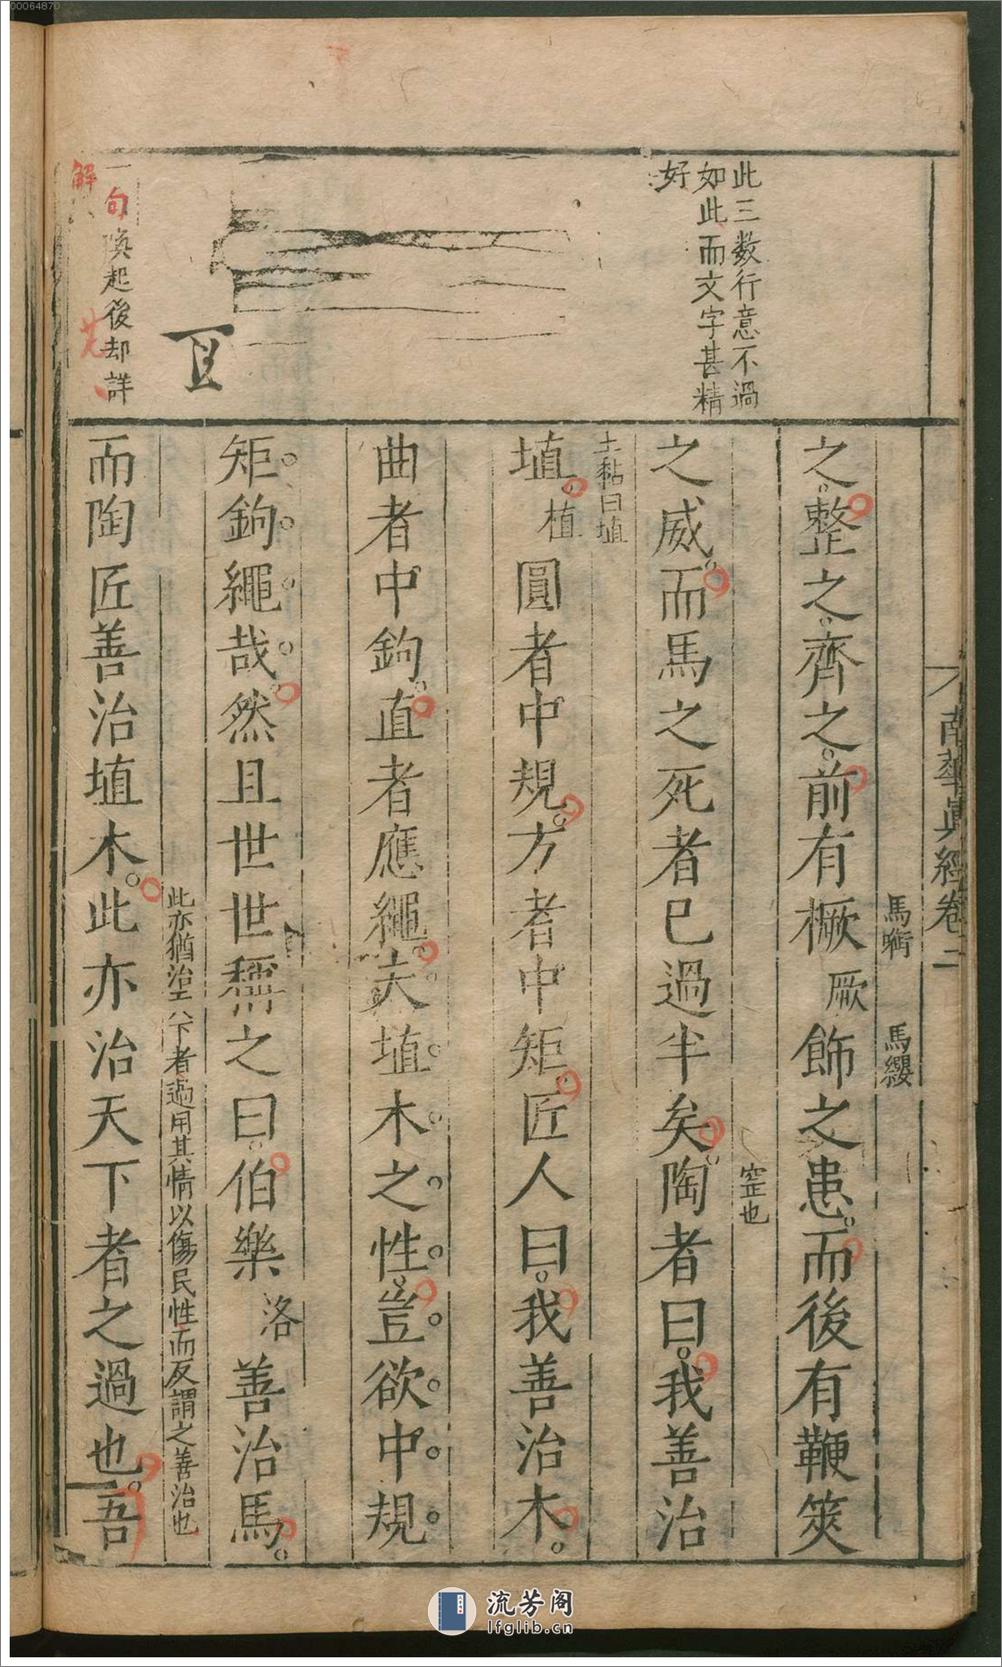 00064870
此三数行意不過
如此而文字甚精
好
一句喚起後却詳
解
南華真經卷二
馬銜 馬纓
之整之齊之前有橛厥飾之患而後有鞭筴
窰也
之威而馬之死者已過半矣陶者曰我善治
土黏曰埴
埴植圓者中規方者中矩匠人曰我善治木
曲者中鉤直者應繩夫埴木之性豈欲中規
矩鉤繩哉然且世世稱之曰伯樂洛善治馬
此亦猶治天下者過用其情以傷民性而反謂之善治也
而陶匠善治埴木此亦治天下者之過也吾
流芳阁
lfglib.cn